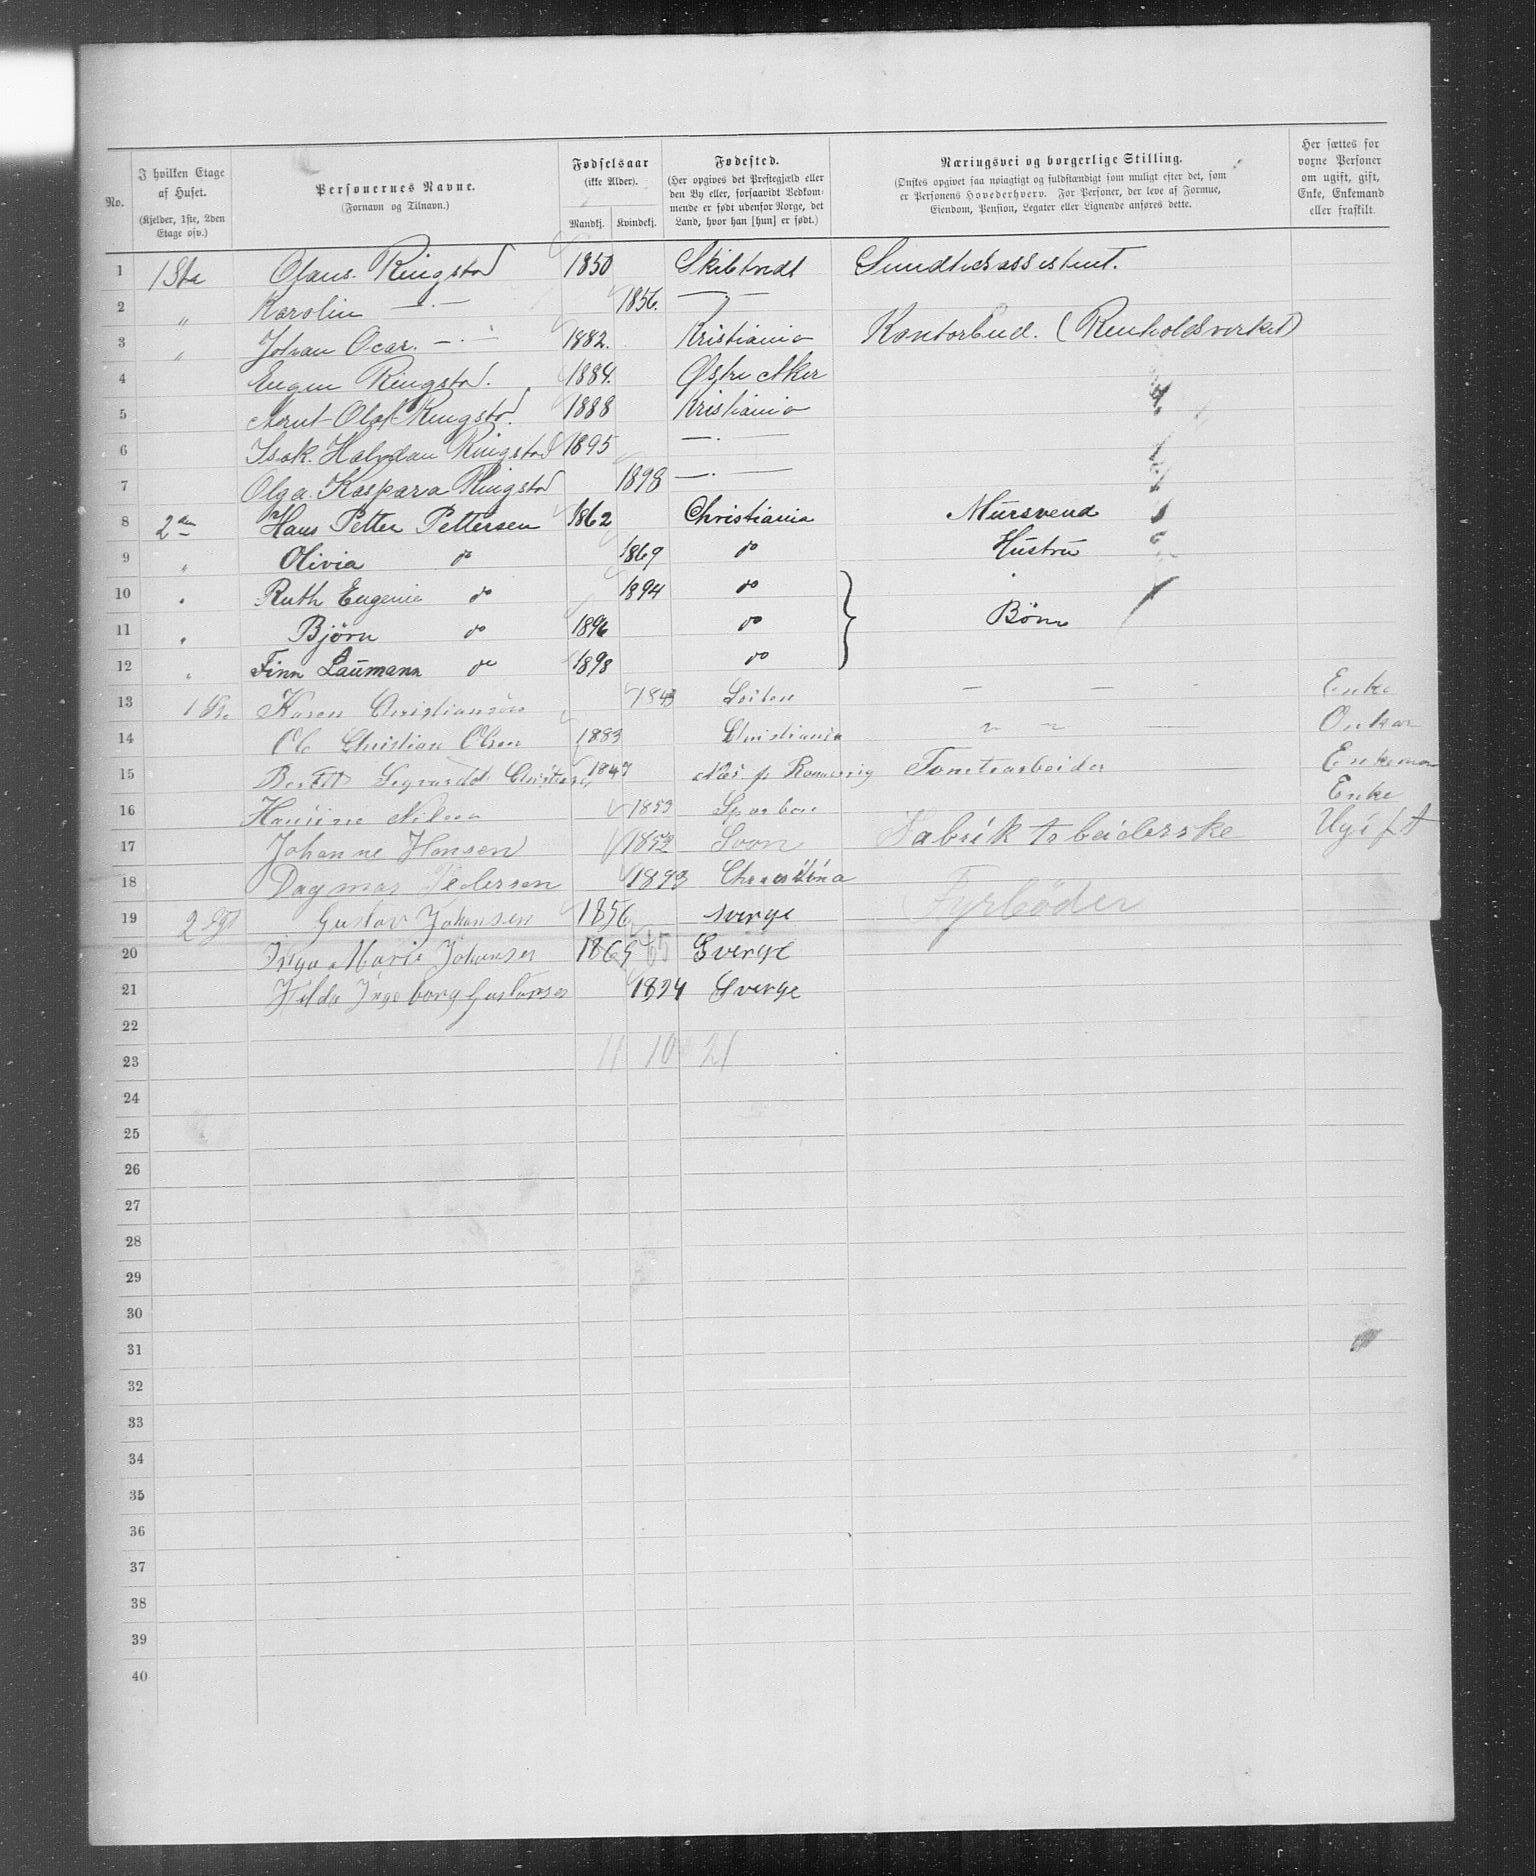 No.
I hvilken Etage af Huset.
(Kjelder, 1ste, 2den Etage osv.)
Personernes Navne.
(Fornavn og Tilnavn.)
Fødselsaar
(ikke Alder).
Mandkj. Kvindekj.
Fødested.
(Her opgives det Prestegjæld eller den By eller, forsaavidt Vedkommende er født udenfor Norge, det Land, hvor han [hun] er født.)
Næringsvei og borgerlige Stilling.
(Ønskes opgivet saa nøiagtigt og fuldstændigt som muligt efter det, som er Personens Hovederhverv. For Personer, der leve af Formue, Eiendom, Pension, Legater eller Lignende anføres dette.
Her sættes for voxne Personer om ugift, gift, Enke, Enkemand eller fraskilt.
1 1 Sta Olaus. Ringstad 1850 Skibtvedt
2 " Karolin — . — 1856. — " —
3 " Johan Ocar. — . — 1882. Kristiania Kontorbud. (Renholdsverket)
4 Eugen Ringstad. 1884. Østre Aker
5 Olaf Ringstad. 1888 Kristiania
6 Isak. Halvdan Ringstad 1895 — . —
7 Olga. Kaspara Ringstad 1898 — . —
8 2den Hans Petter Pettersen 1862 Christiania Mursvend
9 " Olivia do 1869 do Hustru
10 " Ruth Eugenie do 1894 do
11 " Björn do 1896 do Börn
12 " Finn Laumann do 1898 do
13 Karen Christiansen 1843 Løiten — — - Enke
14 Ole Christian Olsen 1883 Christiania " " Onkar
15 Sigvardt 1847 Næs p Romerrig Tomtearbeider Enkeman
16 Nilsen 1853 Enke
17 Johanne Hansen 1852 Soon Fabrik tobeiderske Ugift
18 Dagmar Pedersen 1893
19 Gustav Johansen 1856 Sverge Fyrböder
20 Inga Marie Johansen 1865 65 Sverge
21 Hilda Ingeborg Gustavsen 1894 Sverge
22
23 11 10 21
24
25
26
27
28
29
30
31
32
33
34
35
36
37
38
39
40